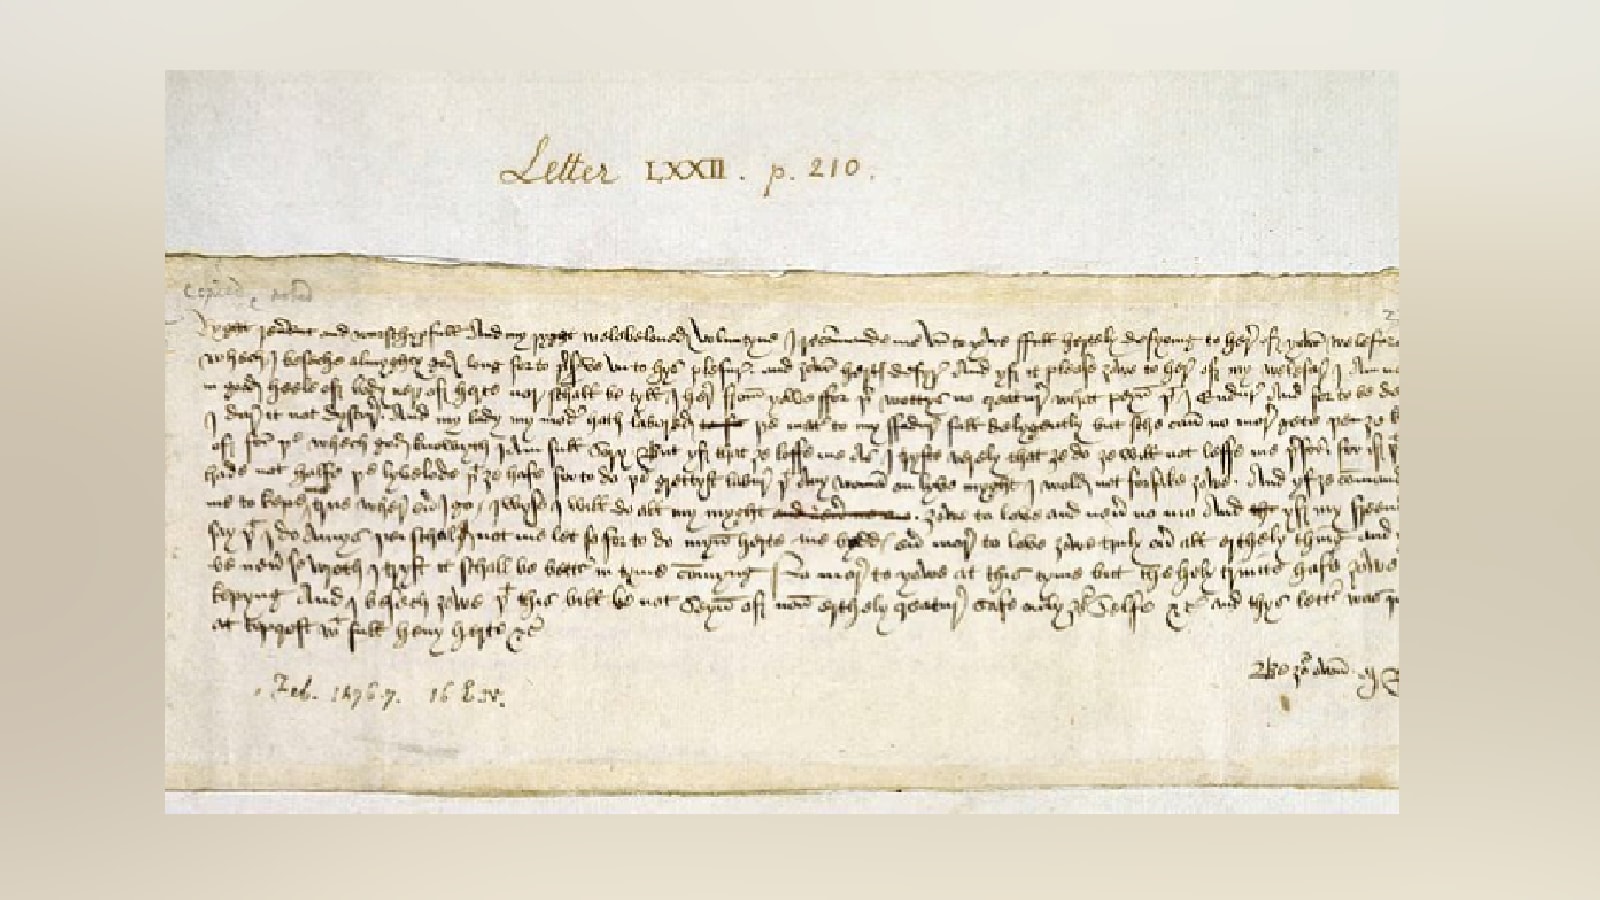 Letter LXXII. p. 210.
Ryght reuerent and wurschypfull And my ryght welebeloued Voluntyne I recommande me vn to yowe ffull hertely desyring to her of yowr welefare
whech I beseche almyghty god long for to preserve vn to hys plesur and ȝowr hertys desyr And yf it please ȝowe to her of my welefar I Am
in good heele of body ner of herte nor schall be tyll I her from yowe ffor þer wottys no creatur what peyn þat I Endur And for to be
I dar it not dyscur And my lady my moder hath labored þe mater to my ffadur full delygently but sche can no mor gete þen ȝe
of for þe whech god knowyth I Am full sory But yf that ȝe loffe me As I tryste verely that ȝe do ȝe will not leffe me þerfor for if þat
hade not halfe þe lyvelode þat ȝe hafe for to do þe grettyst labur þat Any woman on lyve myght I wold not forsake ȝowe And yf ȝe
me to kepe me true wher euer I go I wyse I will do all my myght ȝowe to love and neuer no mo And yf my
say þat I do Amys þei schal not me let so for to do Myn herte me byddys euer mor to love ȝowe truly ouer all erthely thing and
be neuer so wroth I tryst it schall be better in tyme commyng No mor to yowe at this tyme but the holy trinite hafe ȝowe
kepyng And I besech ȝowe þat this bill be not seyn of non erthely creatur safe only ȝour selfe &c And thys letter was
at Topcroft with full heuy herte &c
Be ȝour own
Feb.